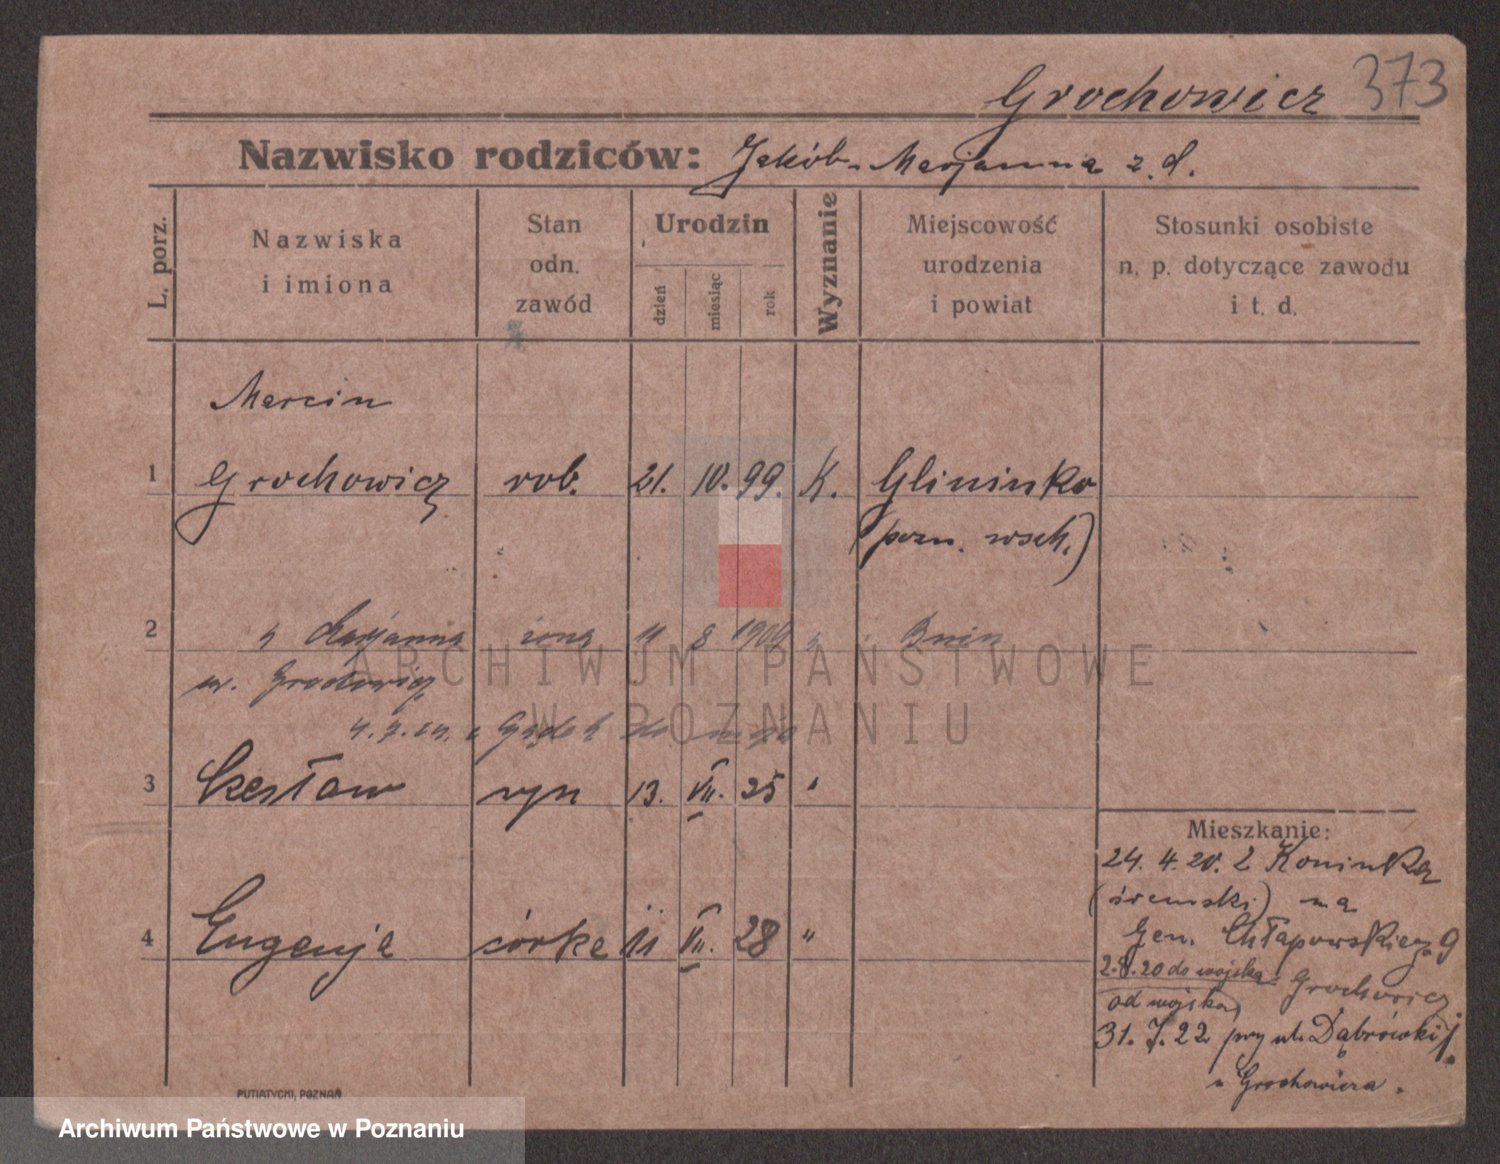 Grochowicz 373
Nazwisko rodziców: Jakób - Marjanna z. d.
L. porz.
Nazwiska
i imiona
Stan
odn.
zawód
Urodzin
dzień
miesiąc
rok
Wyznanie
Miejscowość
urodzenia
i powiat
Stosunki osobiste
n. p. dotyczące zawodu
i t. d.
Marcin
1 Grochowicz rob. 21. IV. 99. K. Glininko
(pozn. wsch.)
2 " Marjanna żona 11 8 1909 " Bnin
ur. Grochowicz
ARCHIWUM PAŃSTWOWE
W POZNANIU
3 Czesław syn 13. VII. 25 "
Mieszkanie:
24. 4. 20. z Koninka
(śremski) na
4 Eugenja córka 11 VII. 28 "
Gen. Chłapowskiego 9
2.8.20 do wojska Grochowicz
od wojska
31. 7. 22 przy ul. Dąbrowskij
u Grochowicza.
PUTIATYCKI, POZNAŃ
Archiwum Państwowe w Poznaniu